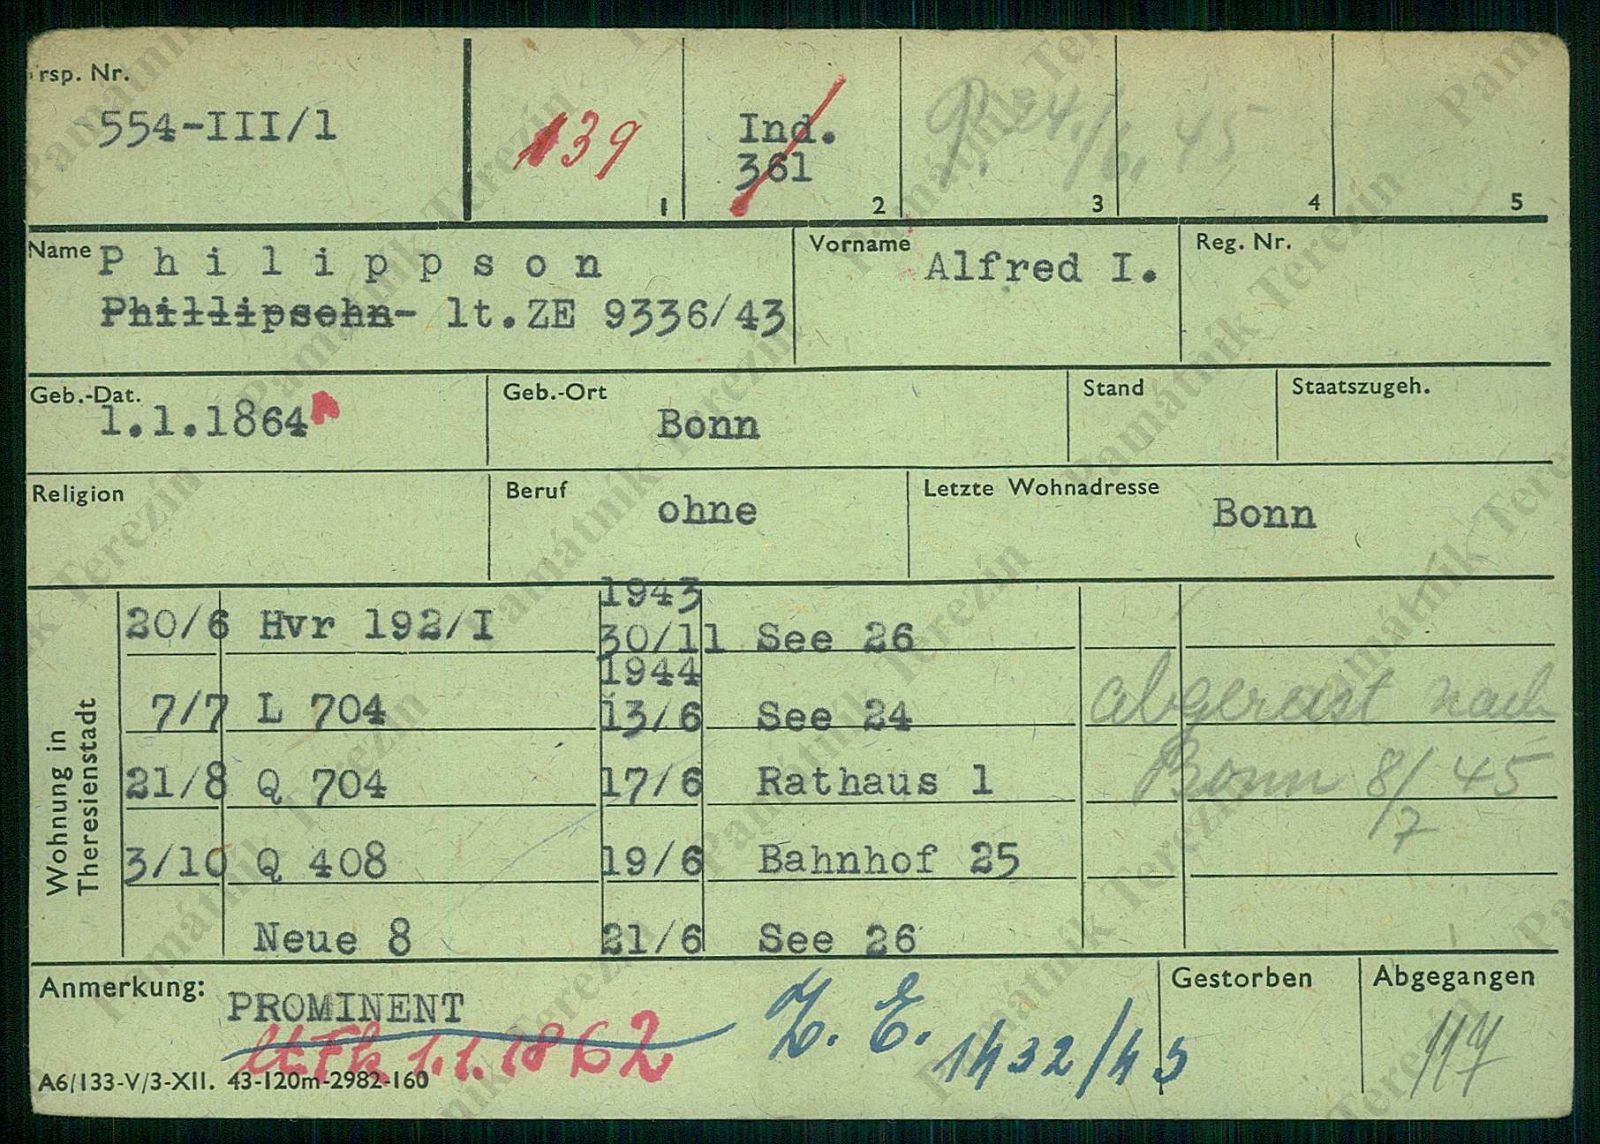 rsp. Nr.
554-III/1
139
Ind.
361
24./6. 45
1
2
3
4
5
Name Philippson
Vorname Alfred I.
Reg. Nr.
Phillipsohn- lt.ZE 9336/43
Geb.-Dat.
1.1.1864
Geb.-Ort
Bonn
Stand
Staatszugeh.
Religion
Beruf
ohne
Letzte Wohnadresse
Bonn
Wohnung in
Theresienstadt
20/6 Hvr 192/I
7/7 L 704
21/8 Q 704
3/10 Q 408
Neue 8
1943
30/11 See 26
1944
13/6 See 24
17/6 Rathaus 1
19/6 Bahnhof 25
21/6 See 26
abgereist nach
Bonn 8/7 45
Anmerkung:
PROMINENT
lt. Fk 1.1.1862
Z. E. 1432/45
Gestorben
Abgegangen
117
A6/133-V/3-XII. 43-120m-2982-160
Památník Terezín